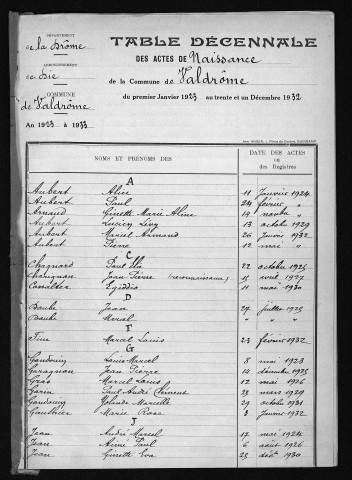 DÉPARTEMENT
de la Drôme
ARRONDISSEMENT
de Die
COMMUNE
de Valdrôme
An 1923 à 1933
TABLE DÉCENNALE
DES ACTES DE Naissance
de la Commune de Valdrôme
du premier Janvier 1923 au trente et un Décembre 1932
NOMS ET PRÉNOMS DES
DATE DES ACTES
ou
des Registres
A
Aubert Alice 11 Janvier 1924
Aubert Paul 24 février "
Arnaud Ginette Marie Aline 19 novbre "
Aubert Lucien Lévy 13 octobre 1929
Aubert Marcel Armand 26 Janvier 1932
Aubert Pierre 12 mai "
C
Chagnard Paul Elie 22 octobre 1925
Jean Pierre (reconnaissance) 15 avril 1927
Egiddio 11 mai 1930
D
Jean 24 juillet 1925
" "
F
Fine Marcel Louis 23 février 1932
G
Gaudouin Louis Marcel 8 mai 1923
Garagnon Jean Pierre 14 décembre 1925
Gras Marcel Louis 12 mai 1926
Garin Paul André Clément 28 mars 1929
Gaudouin Yolande Marcelle 29 octobre 1931
Gauthier Marie Rose 8 Janvier 1932
J
Jean André Marcel 12 mai 1924
Jean Aimé Paul 6 août 1926
Jean Ginette Eva 25 déc. 1930